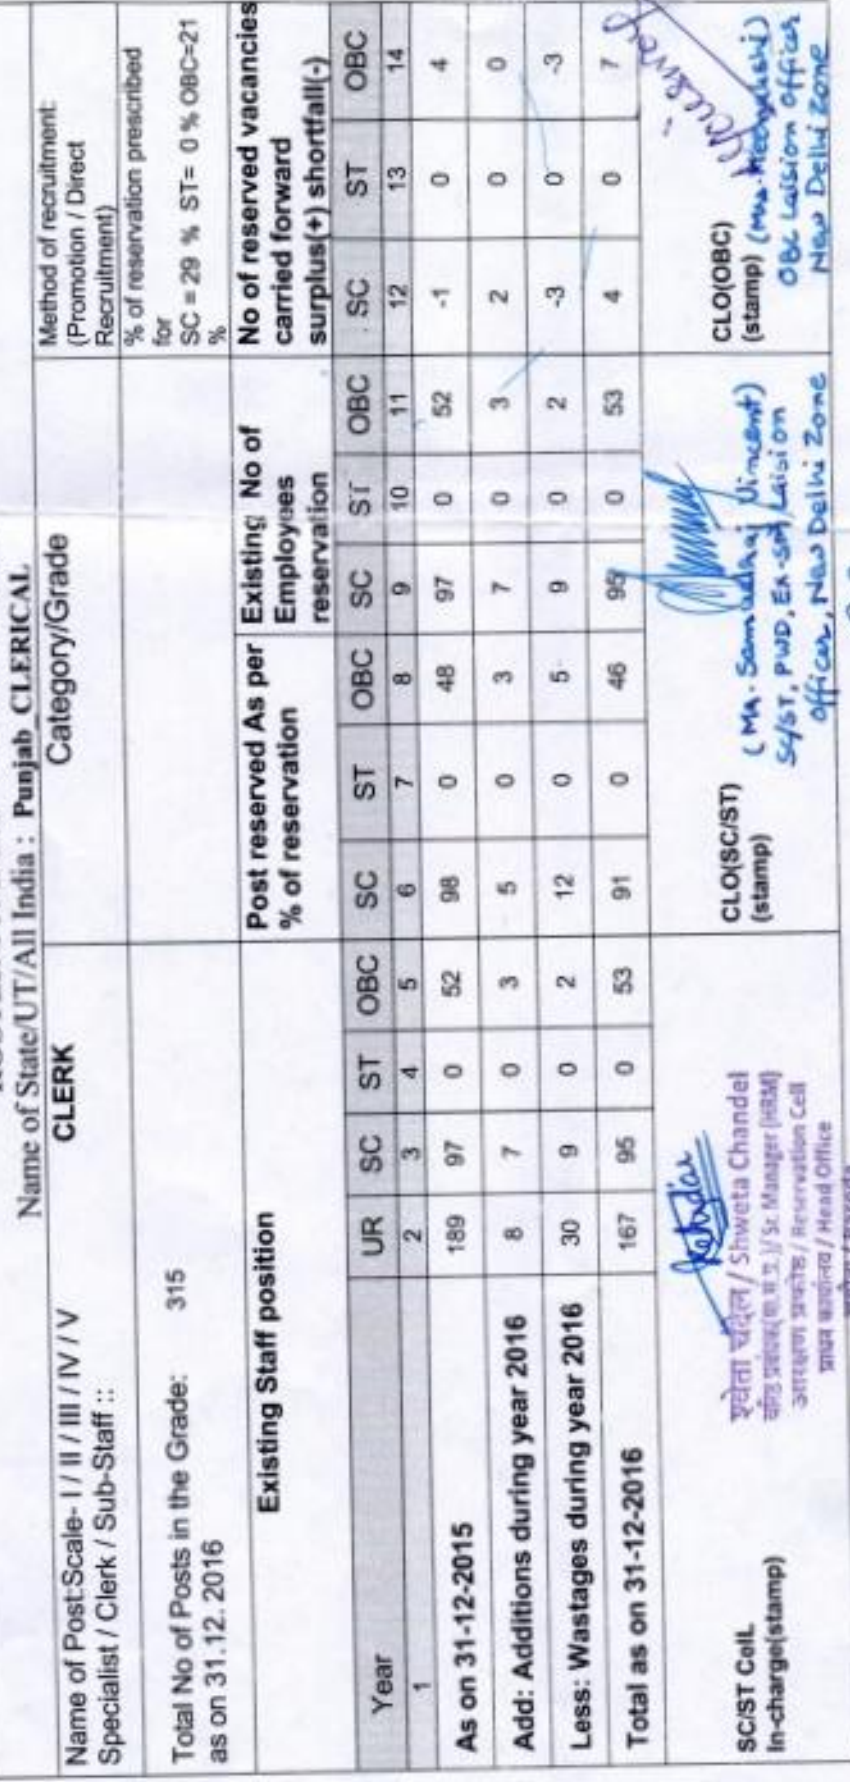 Name of State/UT/All India : Punjab_CLERICAL
Name of Post:Scale- I / II / III / IV / V
Specialist / Clerk / Sub-Staff ::
CLERK
Category/Grade
Method of recruitment:
(Promotion / Direct
Recruitment)
Total No of Posts in the Grade: 315
as on 31.12. 2016
% of reservation prescribed
for
SC = 29 % ST= 0 % OBC=21
%
Existing Staff position
Post reserved As per
% of reservation
Existing No of
Employees
reservation
No of reserved vacancies
carried forward
surplus(+) shortfall(-)
Year UR SC ST OBC SC ST OBC SC ST OBC SC ST OBC
1 2 3 4 5 6 7 8 9 10 11 12 13 14
As on 31-12-2015 189 97 0 52 98 0 48 97 0 52 -1 0 4
Add: Additions during year 2016 8 7 0 3 5 0 3 7 0 3 2 0 0
Less: Wastages during year 2016 30 9 0 2 12 0 5 9 0 2 -3 0 -3
Total as on 31-12-2016 167 95 0 53 91 0 46 95 0 53 4 0 7
SC/ST Cell.
In-charge(stamp)
श्वेता चंदेल / Shweta Chandel
Sr. Manager (HRM)
आरक्षण प्रकोष्ठ / Reservation Cell
प्रधान कार्यालय / Head Office
CLO(SC/ST)
(stamp)
Vincent)
SC/ST, PWD, Ex-SM Laision
Officer, New Delhi Zone
CLO(OBC)
(stamp)
OBC Laision Officer
New Delhi Zone